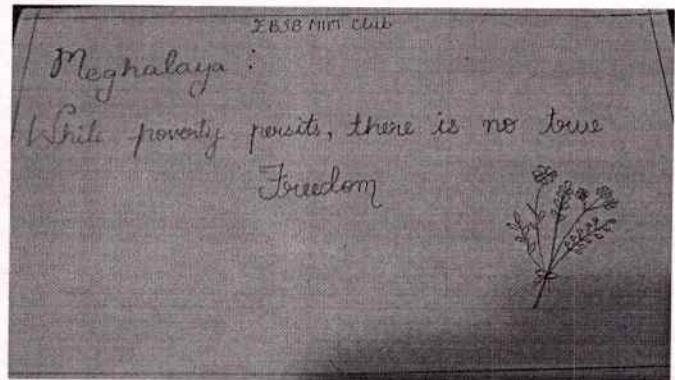 EBSB MIM Club
Meghalaya :
While poverty persits, there is no true
Freedom